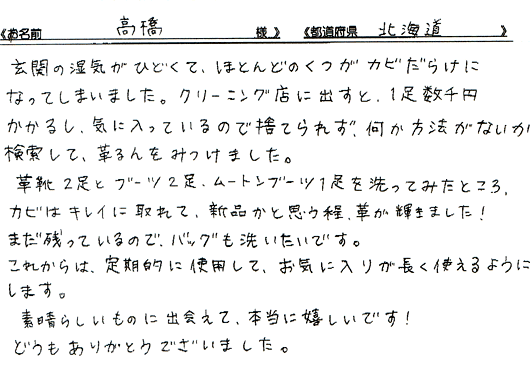 《お名前 高橋 様 》 《都道府県 北海道 》
玄関の湿気がひどくて、ほとんどのくつがカビだらけに
なってしまいました。クリーニング店に出すと、1足数千円
かかるし、気に入っているので捨てられず、何か方法がないか
検索して、革るんをみつけました。
革靴2足とブーツ2足、ムートンブーツ1足を洗ってみたところ、
カビはキレイに取れて、新品かと思う程、革が輝きました!
まだ残っているので、バッグも洗いたいです。
これからは、定期的に使用して、お気に入りが長く使えるように
します。
素晴らしいものに出会えて、本当に嬉しいです!
どうもありがとうございました。